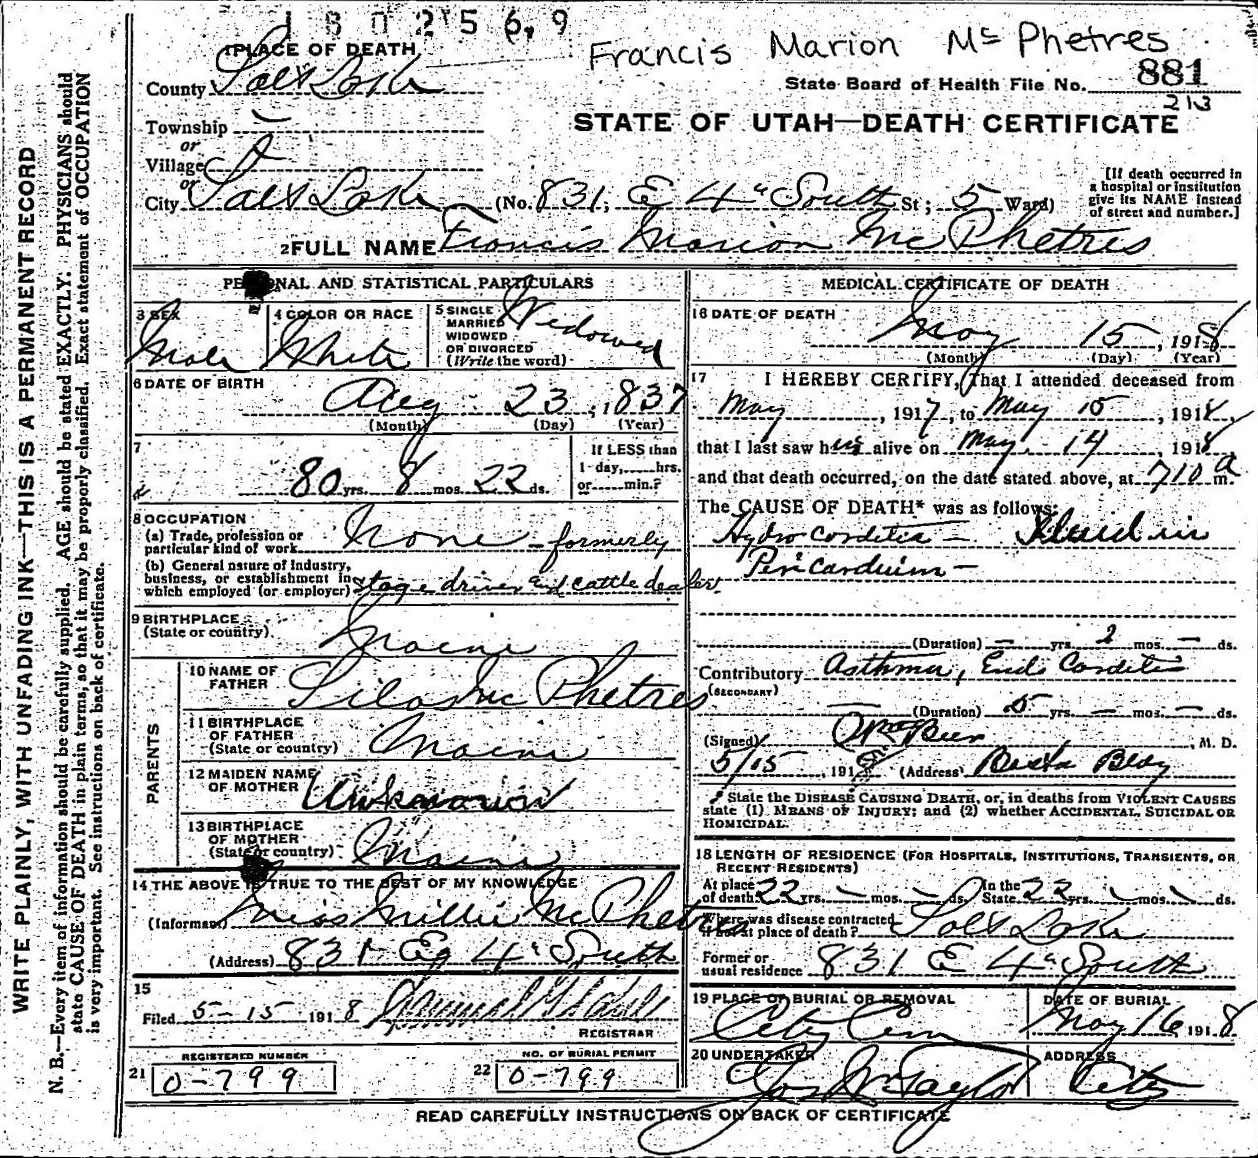 1802569
Francis Marion Mc Phetres
1 PLACE OF DEATH
County Salt Lake
State Board of Health File No. 881
213
Township —
or
Village
or
City Salt Lake (No. 831, E 4" South St; 5 Ward)
STATE OF UTAH—DEATH CERTIFICATE
[If death occurred in
a hospital or institution
give its NAME instead
of street and number.]
2 FULL NAME Francis Marion McPhetres
PERSONAL AND STATISTICAL PARTICULARS
3 SEX Male
4 COLOR OR RACE White
5 SINGLE
MARRIED
WIDOWED
OR DIVORCED
(Write the word) Widowed
6 DATE OF BIRTH
Aug 23, 1837
(Month) (Day) (Year)
7
80 yrs. 8 mos. 22 ds.
If LESS than
1 day,......hrs.
or......min.?
8 OCCUPATION
(a) Trade, profession or
particular kind of work None - formerly
(b) General nature of Industry,
business, or establishment in
which employed (or employer) stage driver and cattle dealer
9 BIRTHPLACE
(State or country) Maine
PARENTS
10 NAME OF
FATHER Silas McPhetres
11 BIRTHPLACE
OF FATHER
(State or country) Maine
12 MAIDEN NAME
OF MOTHER Unknown
13 BIRTHPLACE
OF MOTHER
(State or country) Maine
14 THE ABOVE IS TRUE TO THE BEST OF MY KNOWLEDGE
(Informant) Miss Millie McPhetres
(Address) 831 - E 4" South
15
Filed 5-15 1918
REGISTRAR
REGISTERED NUMBER
21 0-799
NO. OF BURIAL PERMIT
22 0-799
MEDICAL CERTIFICATE OF DEATH
16 DATE OF DEATH
May 15, 1918
(Month) (Day) (Year)
17 I HEREBY CERTIFY, That I attended deceased from
May, 1917, to May 15, 1918
that I last saw him alive on May 14, 1918
and that death occurred, on the date stated above, at 710 a m.
The CAUSE OF DEATH* was as follows:
Hydrocarditis — Fluid in
Pericardium —
(Duration) — yrs. 2 mos. — ds.
Contributory Asthma, Endocarditis
(SECONDARY)
(Duration) 5 yrs. — mos. — ds.
(Signed) M. D.
5/15, 1918 (Address)
* State the DISEASE CAUSING DEATH, or, in deaths from VIOLENT CAUSES
state (1) MEANS OF INJURY; and (2) whether ACCIDENTAL, SUICIDAL OR
HOMICIDAL.
18 LENGTH OF RESIDENCE (FOR HOSPITALS, INSTITUTIONS, TRANSIENTS, OR
RECENT RESIDENTS)
At place
of death 22 yrs. — mos. — ds. In the
State 22 yrs. — mos. — ds.
Where was disease contracted
if not at place of death? Salt Lake
Former or
usual residence 831 E 4" South
19 PLACE OF BURIAL OR REMOVAL
City Cem
DATE OF BURIAL
May 16 1918
20 UNDERTAKER
Jos Wm Taylor
ADDRESS
City
READ CAREFULLY INSTRUCTIONS ON BACK OF CERTIFICATE
WRITE PLAINLY, WITH UNFADING INK—THIS IS A PERMANENT RECORD
N. B.—Every item of information should be carefully supplied. AGE should be stated EXACTLY. PHYSICIANS should
state CAUSE OF DEATH in plain terms, so that it may be properly classified. Exact statement of OCCUPATION
is very important. See instructions on back of certificate.